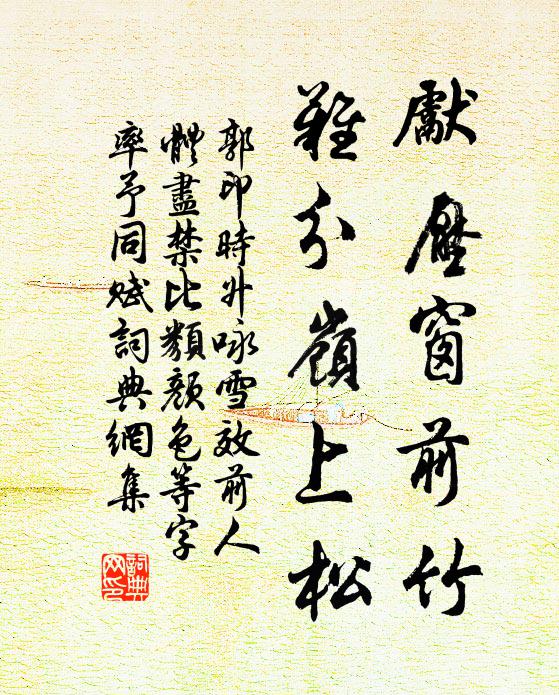 獻壓窗前竹
難分嶺上松
郭印時升咏雪效前人
體盡禁比類顏色等字
率予同賦詞典網集
詞典
网印